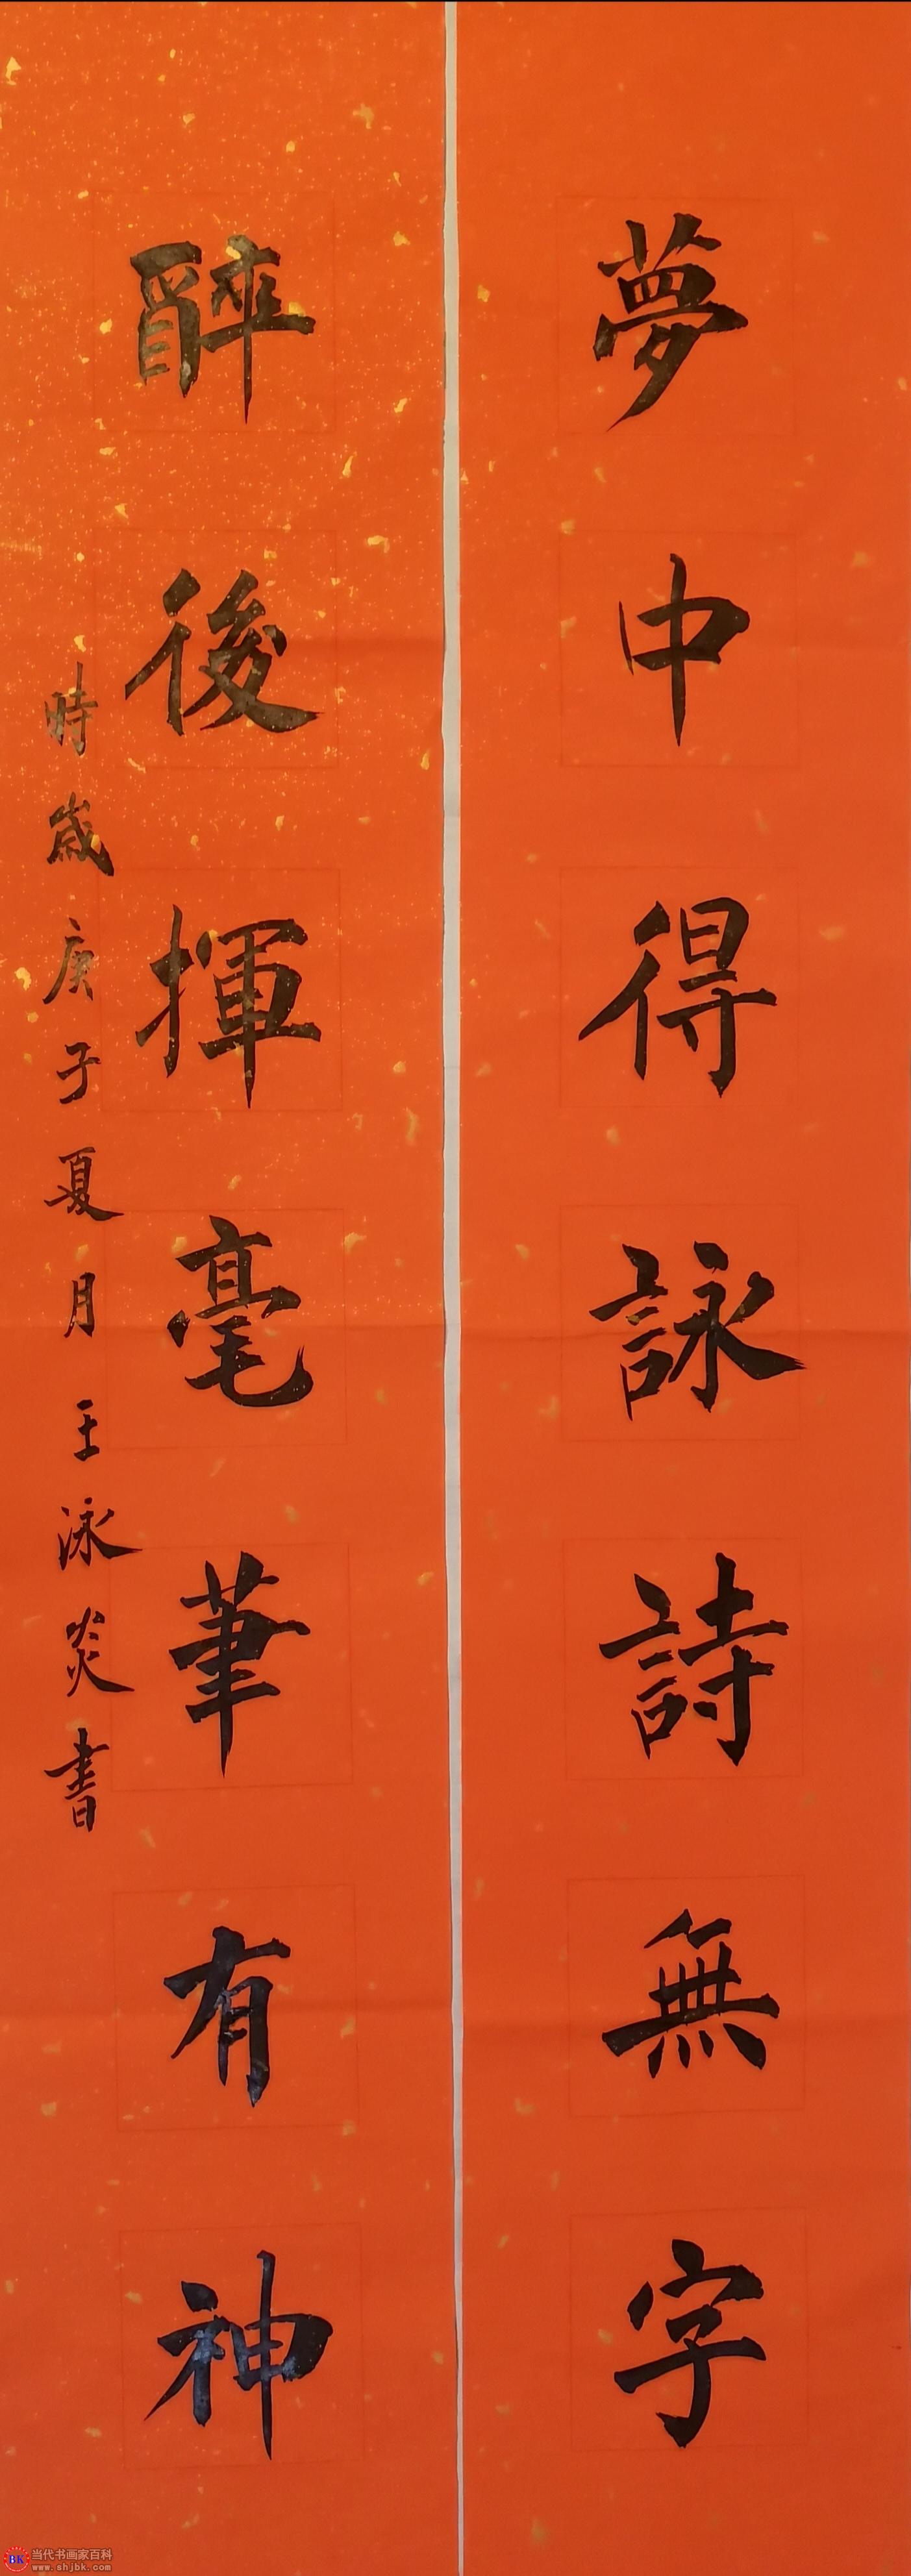 夢中得詠詩無字
醉後揮毫筆有神
時歲庚子夏月王泳炎書
BK
当代书画家百科
www.shjbk.com